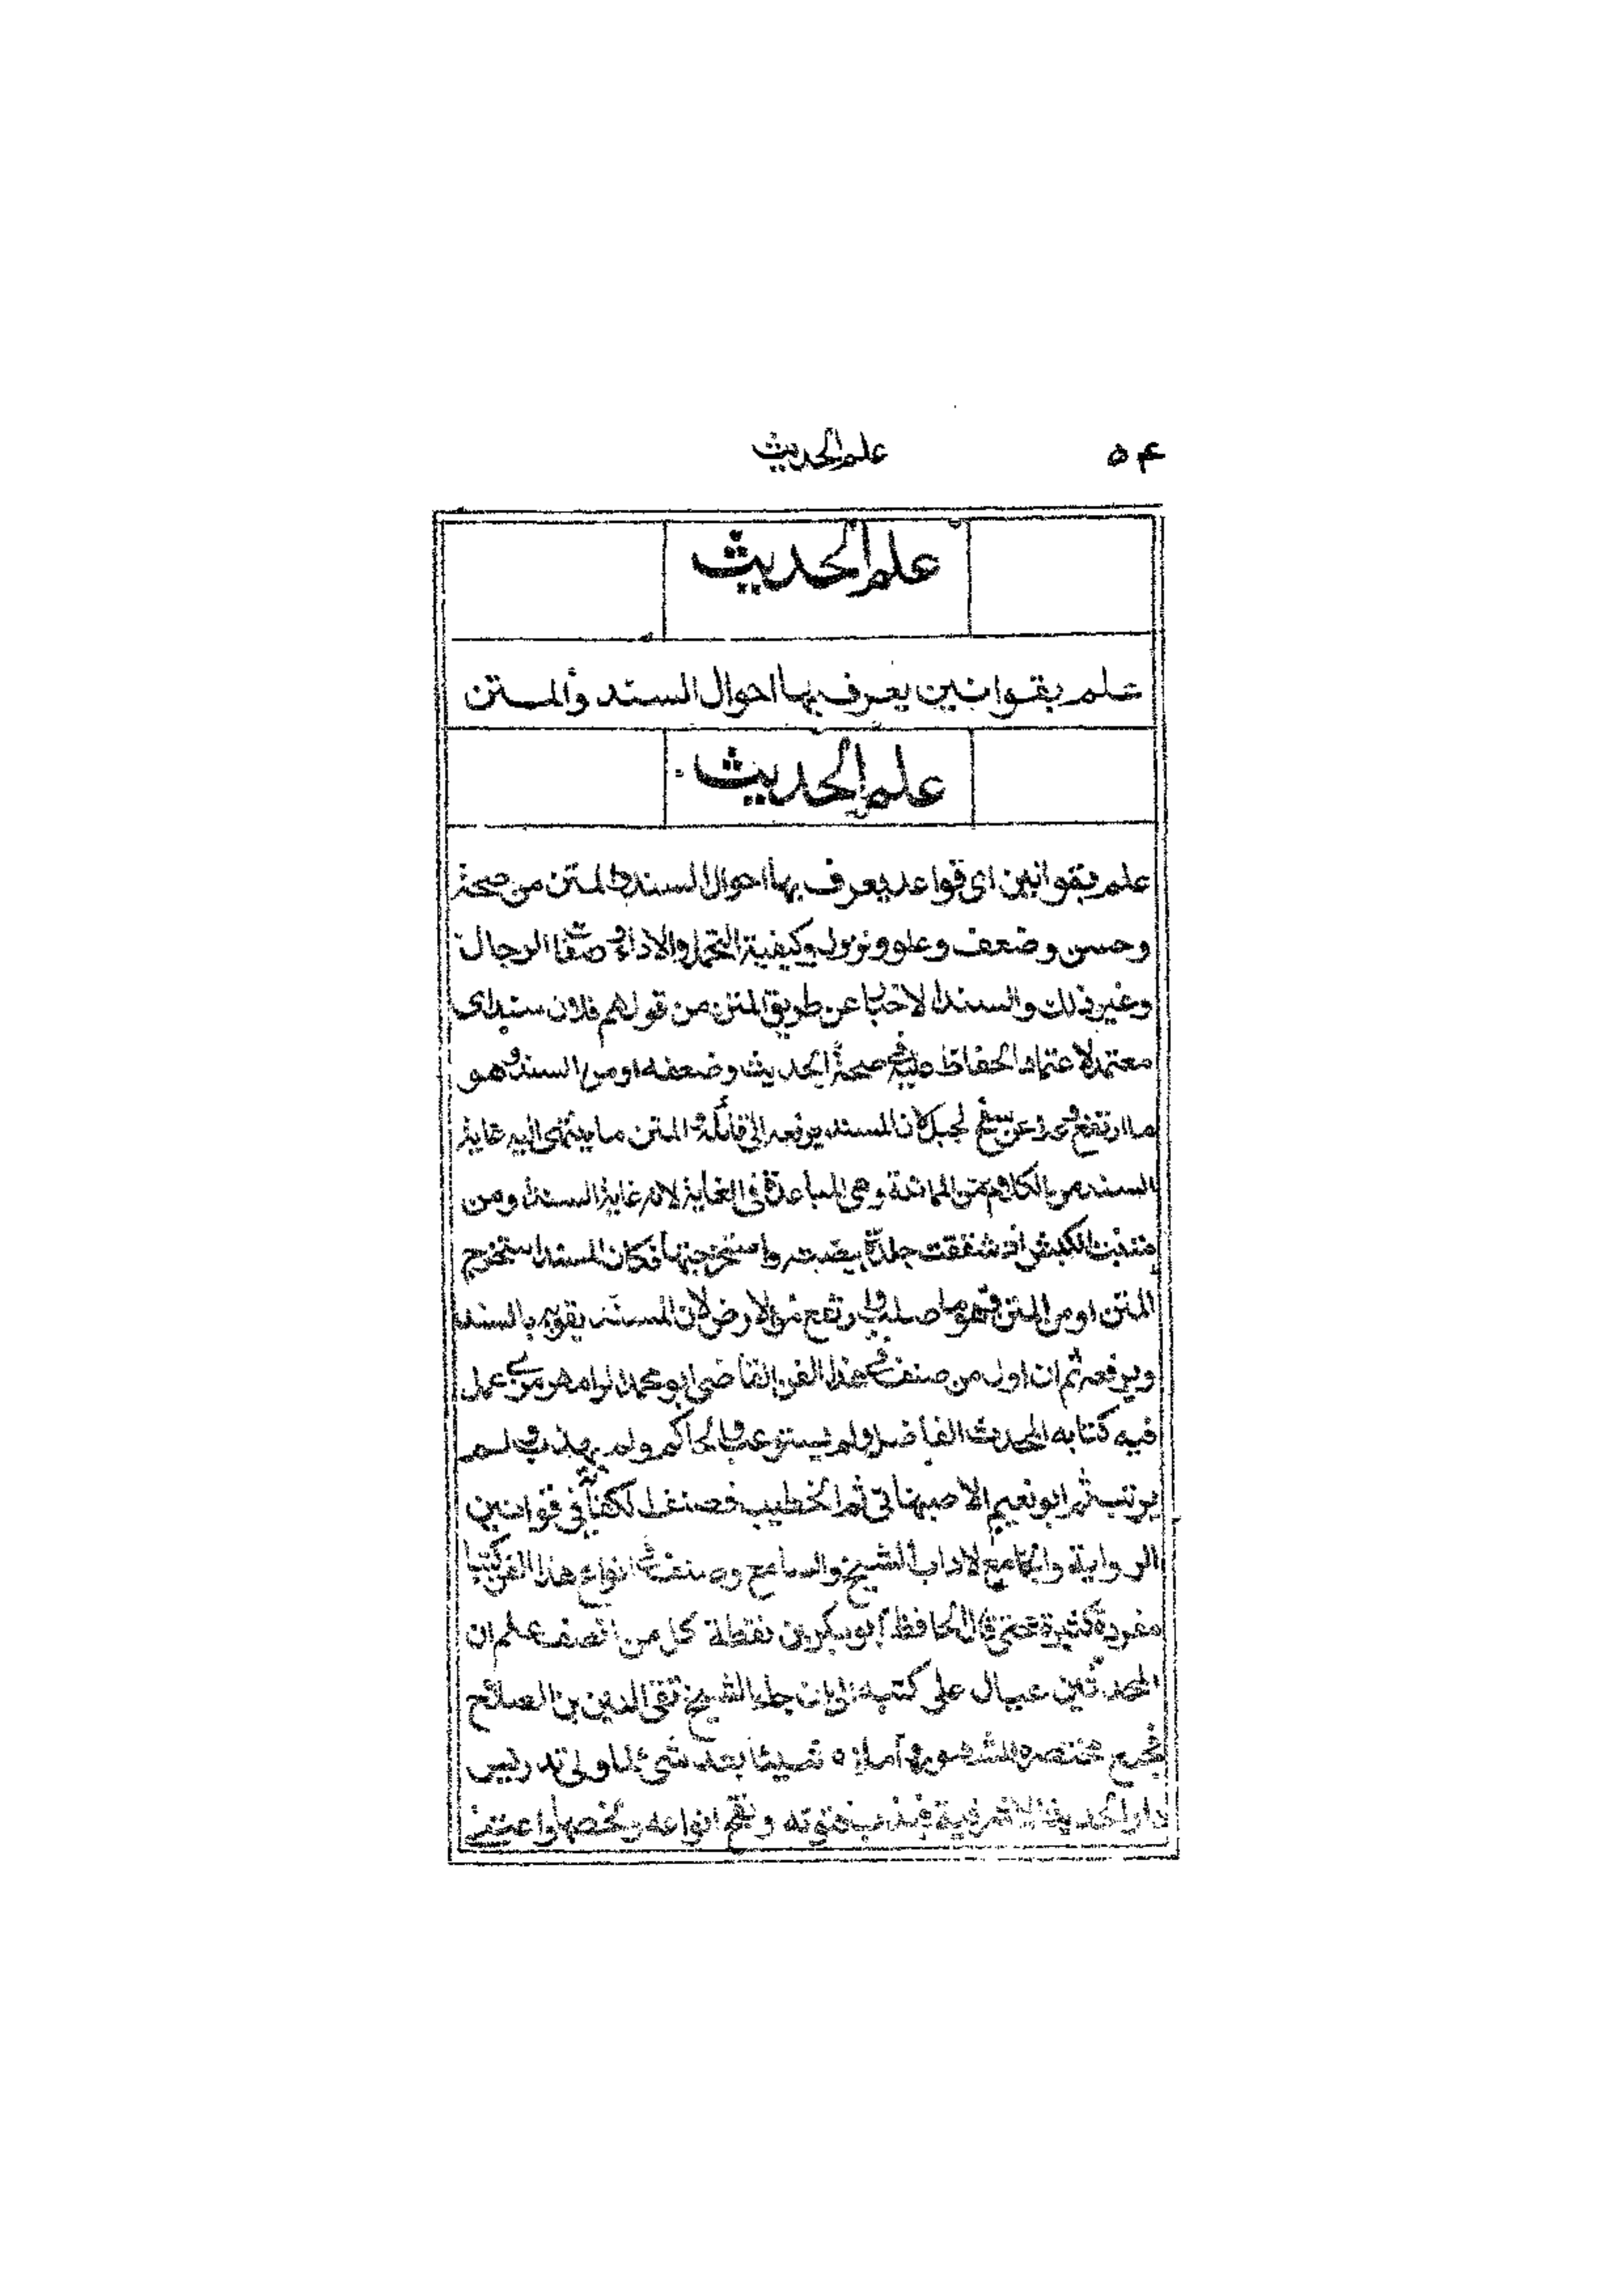 علم الحديث ۵۴
علم الحديث
علم بقوانين يعرف بها احوال السند والمتن
علم الحديث
علم بقوانين اى قواعد يعرف بها احوال السند والمتن من صحة
وحسن وضعف وعلو ونزول وكيفية التحمل والاداء وصفات الرجال
وغير ذلك والسند الاخبار عن طريق المتن من قولهم فلان سند اى
معتمد لاعتماد الحفاظ عليه فى صحة الحديث وضعفه او من السند وهو
ما ارتفع وعلا عن سفح الجبل لان المسند يرفعه الى قائله والمتن ما ينتهى اليه غاية
السند من الكلام من المماتنة وهى المباعدة فى الغاية لانه غاية السند او من
متنت الكبش اذ شققت جلدة بيضته واستخرجتها فكان المسند استخرج
المتن او من المتن وهو ما صلب وارتفع من الارض لان المسند يقويه بالسند
ويرفعه ثم ان اول من صنف فى هذا الفن القاضى ابو محمد الرامهرمزى عمل
فيه كتابه المحدث الفاضل ولم يستوعب والحاكم ولم يهذب ولم
يرتب ثم ابو نعيم الاصبهانى ثم الخطيب فصنف الكفاية فى قوانين
الرواية والجامع لآداب الشيخ والسامع وصنف فى انواع هذا الفن كتبا
مفردة كثيرة حتى قال الحافظ ابو بكر بن نقطة كل من انصف علم ان
المحدثين عيال على كتبه الى ان جاء الشيخ تقى الدين بن الصلاح
فجمع مختصره المشهور فاملاه شيئا بعد شئ لما ولى تدريس
دار الحديث الاشرفية فهذب فنونه ونقح انواعه ولخصها واعتنى